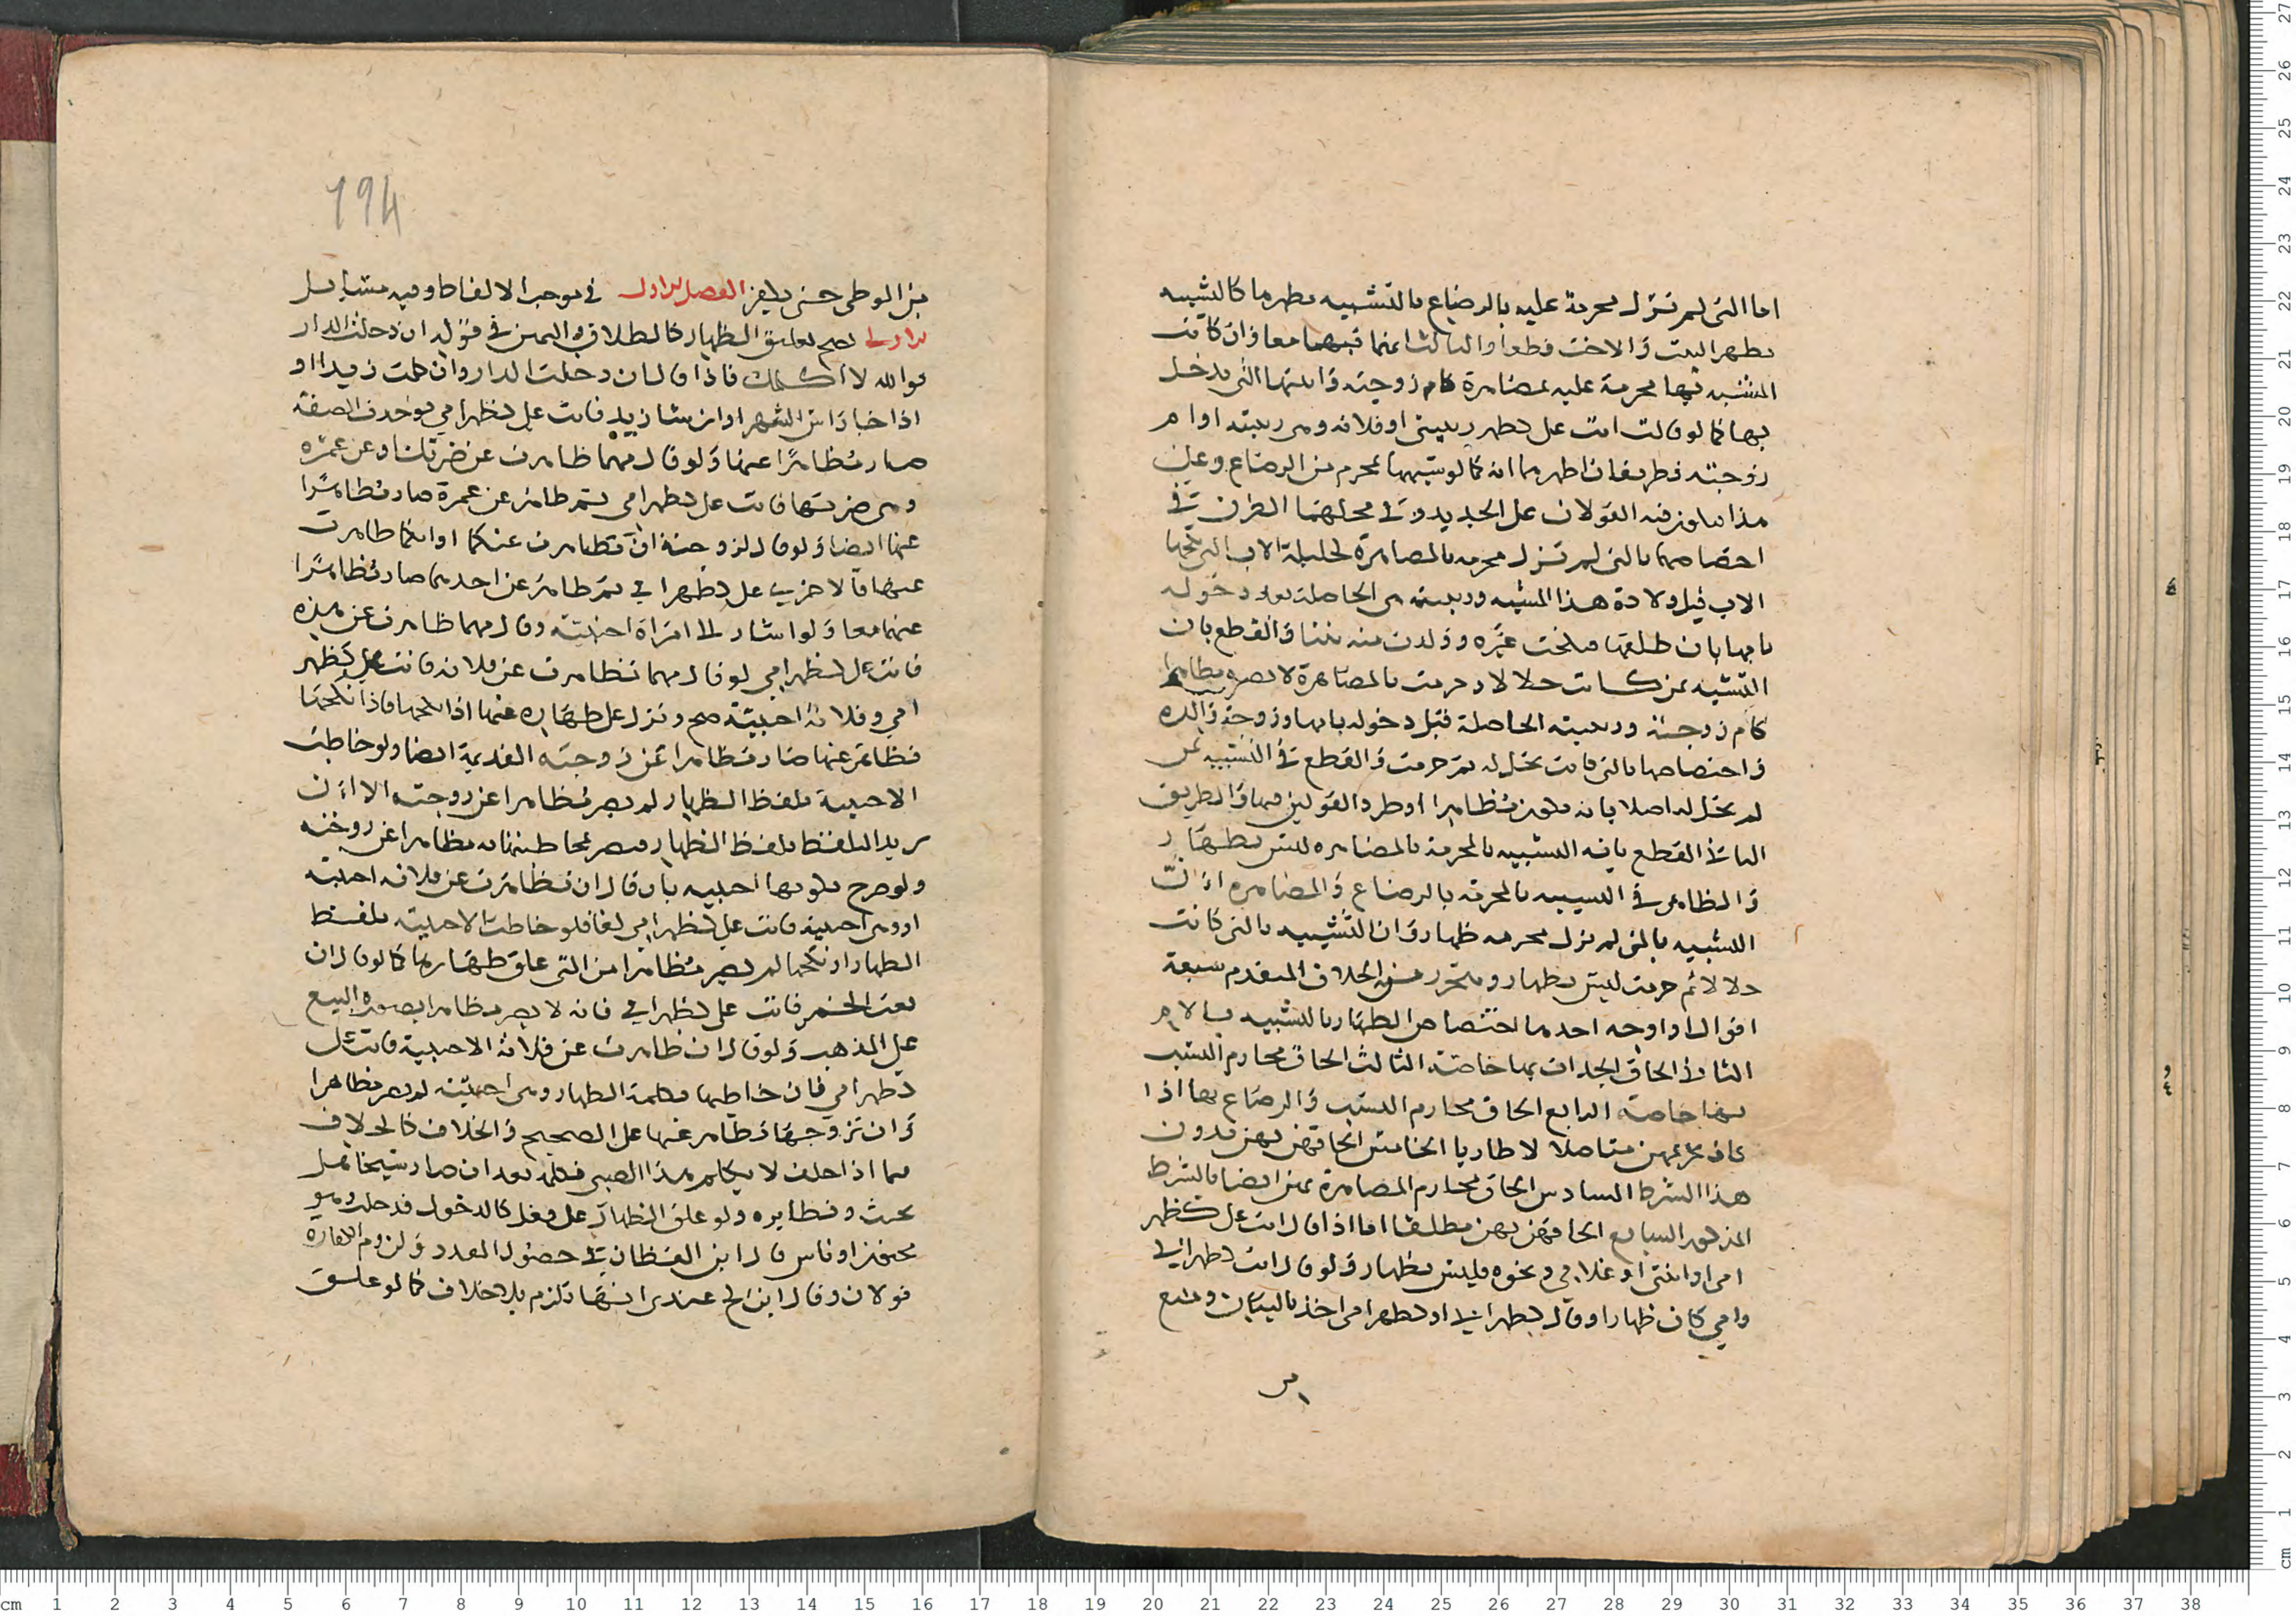 اما التي لم تزل محرمة عليه بالرضاع فالتشبيه بظهرها كالتشبيه
بظهر البنت والاخت قطعا والثالث انها فيهما معا وان كانت
المشبه بها محرمة عليه بمصاهرة كام زوجته وابنتها التي دخل
بها كما لو قالت انت علي كظهر ربيبتي او فلانه وهي ربيبته او ام
زوجته فطريقان اظهرهما انه كما لو شبهها بمحرم من الرضاع وعلى
هذا فيكون فيه القولان على الجديد وفي محلهما الطرق في
اختصاصهما بالتي لم تزل محرمه بالمصاهرة كحليلة الاب التي نكحها
الاب قبل ولادة هذا المشبه وربيبته هي الحاصلة بعد دخوله
بامها بان طلقها فنكحت غيره وولدت منه بنتا والقطع بان
التشبيه بمن كانت حلالا وحرمت بالمصاهرة لا يصير مظاهرا
كام زوجته وربيبته الحاصلة قبل دخوله بامها وزوجة والده
واختصاصها بالتي كانت تحل له ثم حرمت والقطع في التشبيه بمن
لم تحل له اصلا بانه يكون مظاهرا او طرد القولين فيهما والطريق
الثاني القطع بانه التشبيه بالمحرمة بالمصاهره ليس بظهار
والظاهر في التشبيه بالمحرمة بالرضاع والمصاهره ان
التشبيه بالتي لم تزل محرمه ظهار وان التشبيه بالتي كانت
حلالا ثم حرمت ليس بظهار ويتحرر من الخلاف المتقدم سبعة
اقوال او اوجه احدها اختصاص الظهار بالتشبيه بالام
الثاني الحاق الجدات بها خاصة الثالث الحاق محارم النسب
بها خاصة الرابع الحاق محارم النسب والرضاع بها اذا
كان تحريمهن متاصلا لا طاريا الخامس الحاقهن بهن بدون
هذا الشرط السادس الحاق محارم المصاهرة بهن ايضا بالشرط
المذكور السابع الحاقهن بهن مطلقا اما اذا قال انت علي كظهر
امي او ابنتي او غلامي ونحوه فليس بظهار ولو قال انت كظهر ابي
وامي كان ظهارا وقال كظهر ابي او كظهر امي اخذ بالبيان ومنع
194
من الوطي حتى يبين الفصل الاول في موجب الالفاظ وفيه مسايل
الاولى يصح تعليق الظهار كالطلاق واليمين في قوله ان دخلت الدار
فوالله لا اكلمك فاذا قال ان دخلت الدار وان كلمت زيدا او
اذا جاء راس الشهر او ان شاء زيد فانت علي كظهر امي فوجدت الصفة
صار مظاهرا عنها ولو قال مهما ظاهرت عن ضرتك او عن عمره
وهي ضرتها فانت علي كظهر امي ثم ظاهر عن عمرة صار مظاهرا
عنها ايضا ولو قال لزوجتيه ان تظاهرت عنكما او ايكما ظاهرت
عنها فالاخرى علي كظهر امي ثم ظاهر عن احدهما صار مظاهرا
عنهما معا ولو اشار الى امراة اجنبية وقال مهما ظاهرت عن هذه
فانت علي كظهر امي لو قال مهما تظاهرت عن فلانه فانت علي كظهر
امي وفلانة اجنبية صح ونزل على ظهاره عنها اذا نكحها فاذا نكحها
فظاهر عنها صار مظاهرا عن زوجته القديمة ايضا ولو خاطب
الاجنبية بلفظ الظهار لم يصر مظاهرا عن زوجته الا ان
يريد التلفظ بلفظ الظهار فيصير بمخاطبتها به مظاهرا عن زوجته
ولو صرح بكونها اجنبيه بان قال ان تظاهرت عن فلانه اجنبية
او وهي اجنبية فانت علي كظهر امي لغا فلو خاطب الاجنبية بلفظ
الظهار او نكحها لم يصر مظاهرا من التي علق ظهارها كما لو قال ان
بعت الخمر فانت علي كظهر امي فانه لا يصير مظاهرا بصورة البيع
على المذهب ولو قال ان ظاهرت عن فلانة الاجنبية فانت علي
كظهر امي فان خاطبها بكلمة الظهار وهي اجنبية لم يصر مظاهرا
وان تزوجها وظاهر عنها على الصحيح والخلاف كالخلاف
فيما اذا حلف لا يكلم هذا الصبي فكلمه بعد ان صار شيخا هل
يحنث ونظايره ولو علق الظهار على فعل كالدخول فدخلت وهو
مجنون او ناس قال ابن القطان في حصول العود ولزوم الكفارة
قولان وقال ابن كج عندي انها تلزم بلا خلاف كما لو علق